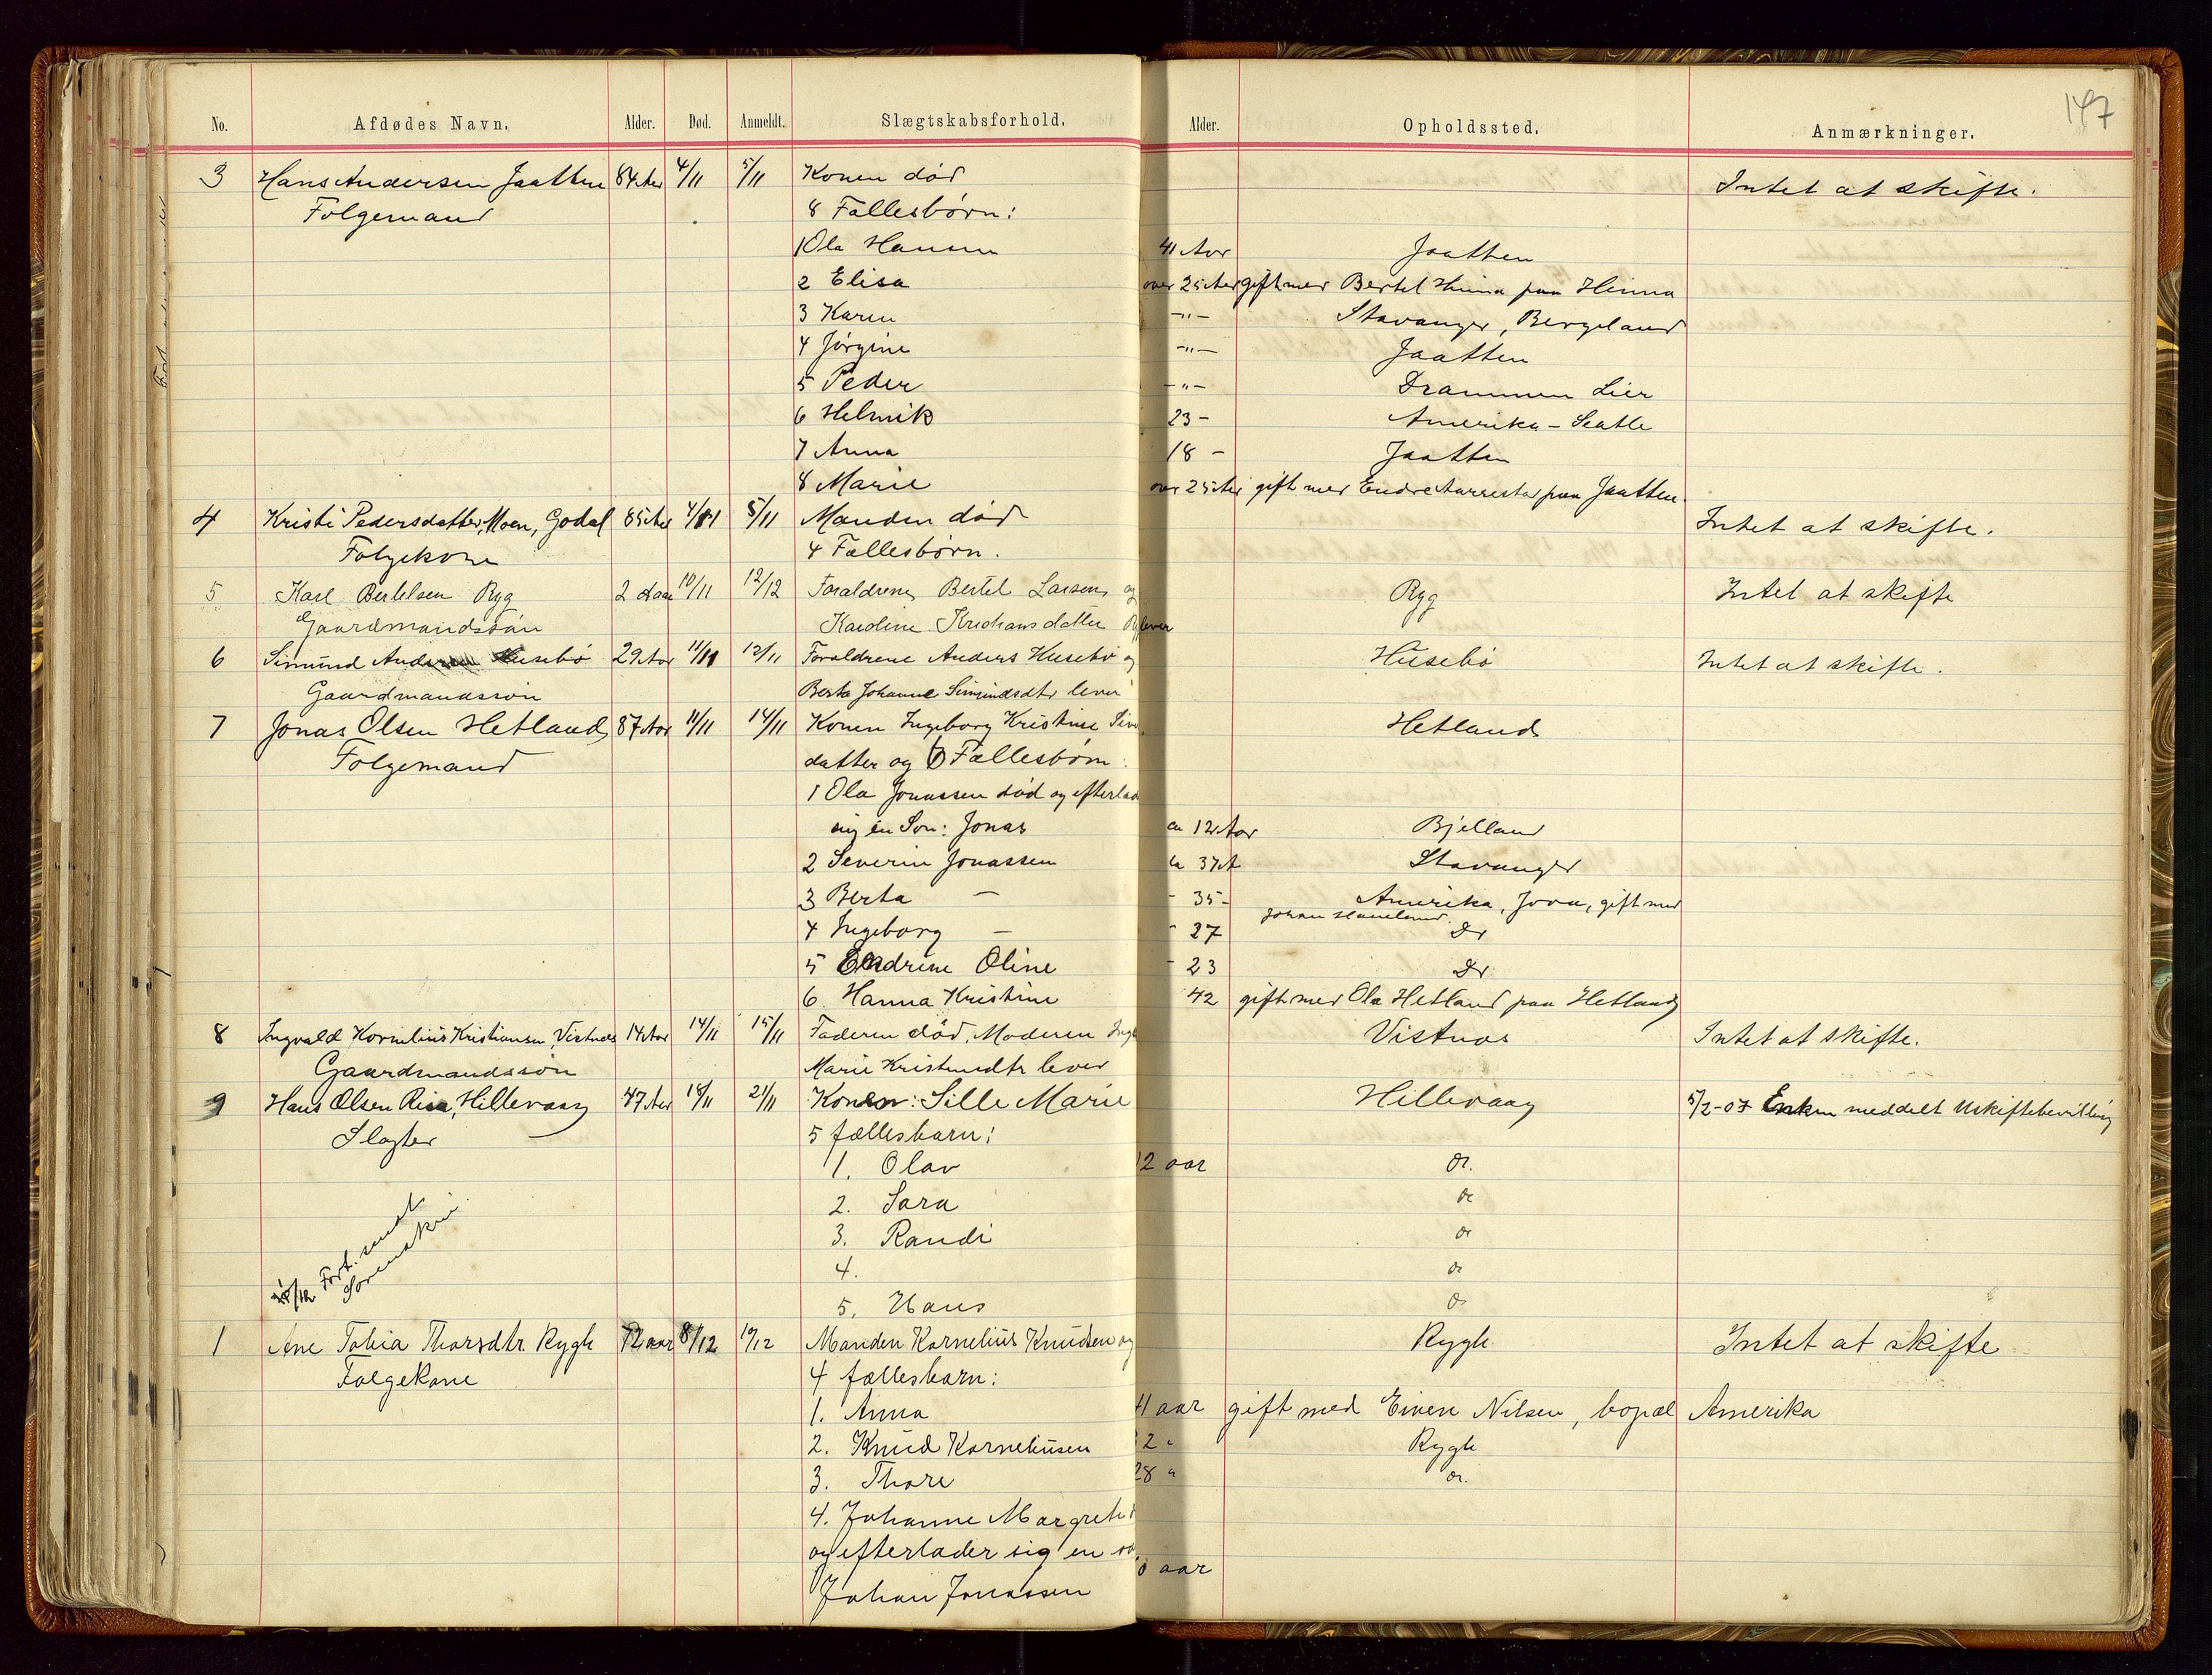 147
No. Afdødes Navn. Alder. Død. Anmeldt. Slægtskabsforhold. Alder. Opholdssted. Anmærkninger.
3 Hans Andersen Jaatten 84 Aar 4/11 5/11 Konen død Intet at skifte.
Folgemand 8 Fællesbørn:
1 Ola Hansen 41 Aar Jaatten
2 Elisa over 25 Aar gift med Bertel Hinna paa Hinna
3 Karen -"- Stavanger, Bergeland
4 Jørgine -"- Jaatten
5 Peder -"- Drammen Lier
6 Helmik 23 - Amerika - Seatle
7 Anna 18 - Jaatten
8 Marie over 25 Aar gift med Endre Aarrestad paa Jaatten
4 Kristi Pedersdatter Moen, Godal 85 Aar 4/11 5/11 Manden død Intet at skifte.
Folgekone 4 Fællesbørn.
5 Karl Bertelsen Ryg 2 Aar 10/11 12/12 Forældrene Bertel Larsen og Ryg Intet at skifte
Gaardmandssøn Karoline Kristiansdatter lever
6 Simund Andersen Husebø 29 Aar 11/11 12/11 Forældrene Anders Husebø og Husebø Intet at skifte.
Gaardmandssøn Berta Johanne Simundsdtr lever
7 Jonas Olsen Hetland 87 Aar 11/11 14/11 Konen Ingeborg Kristine Hetland
Folgemand datter og 6 Fællesbørn:
1 Ola Jonassen død og efterlad
sig en Søn: Jonas ca 12 Aar Bjelland
2 Severin Jonassen ca 37 A Stavanger
3 Berta — - 35 - Amerika, Jova, gift med
Johan Haneland.
4 Ingeborg — - 27 Do
5 Endrine Oline - 23 Do
6 Hanna Kristine 42 gift med Ola Hetland paa Hetland
8 Ingvald Kornelius Kristiansen Vistnæs 14 Aar 14/11 15/11 Faderen død, Moderen Vistnæs Intet at skifte.
Gaardmandssøn Marie Kristensdtr lever
9 Hans Olsen Risa, Hillevaag 47 Aar 18/11 21/11 Konen: Sille Marie Hillevaag 5/2-07 Enken meddelt Uskiftebevilling
Slagter 5 fællesbarn:
1. Olav 12 aar do.
2. Sara do
3. Randi do
4. do
5. Hans do
Fort. sendt
Sorenskri.
1 Ane Tobia Thorsdtr. Rygh 72 aar 8/12 10/12 Manden Kornelius Knudsen og Rygh Intet at skifte
Folgekone 4 fællesbarn:
1. Anna 41 aar gift med Einen Nilsen, bopæl Amerika
2. Knud Korneliusen 32 " Rygh
3. Thore 28 " do.
4. Johanne Margrete
og efterlader sig en
Johan Jonassen aar